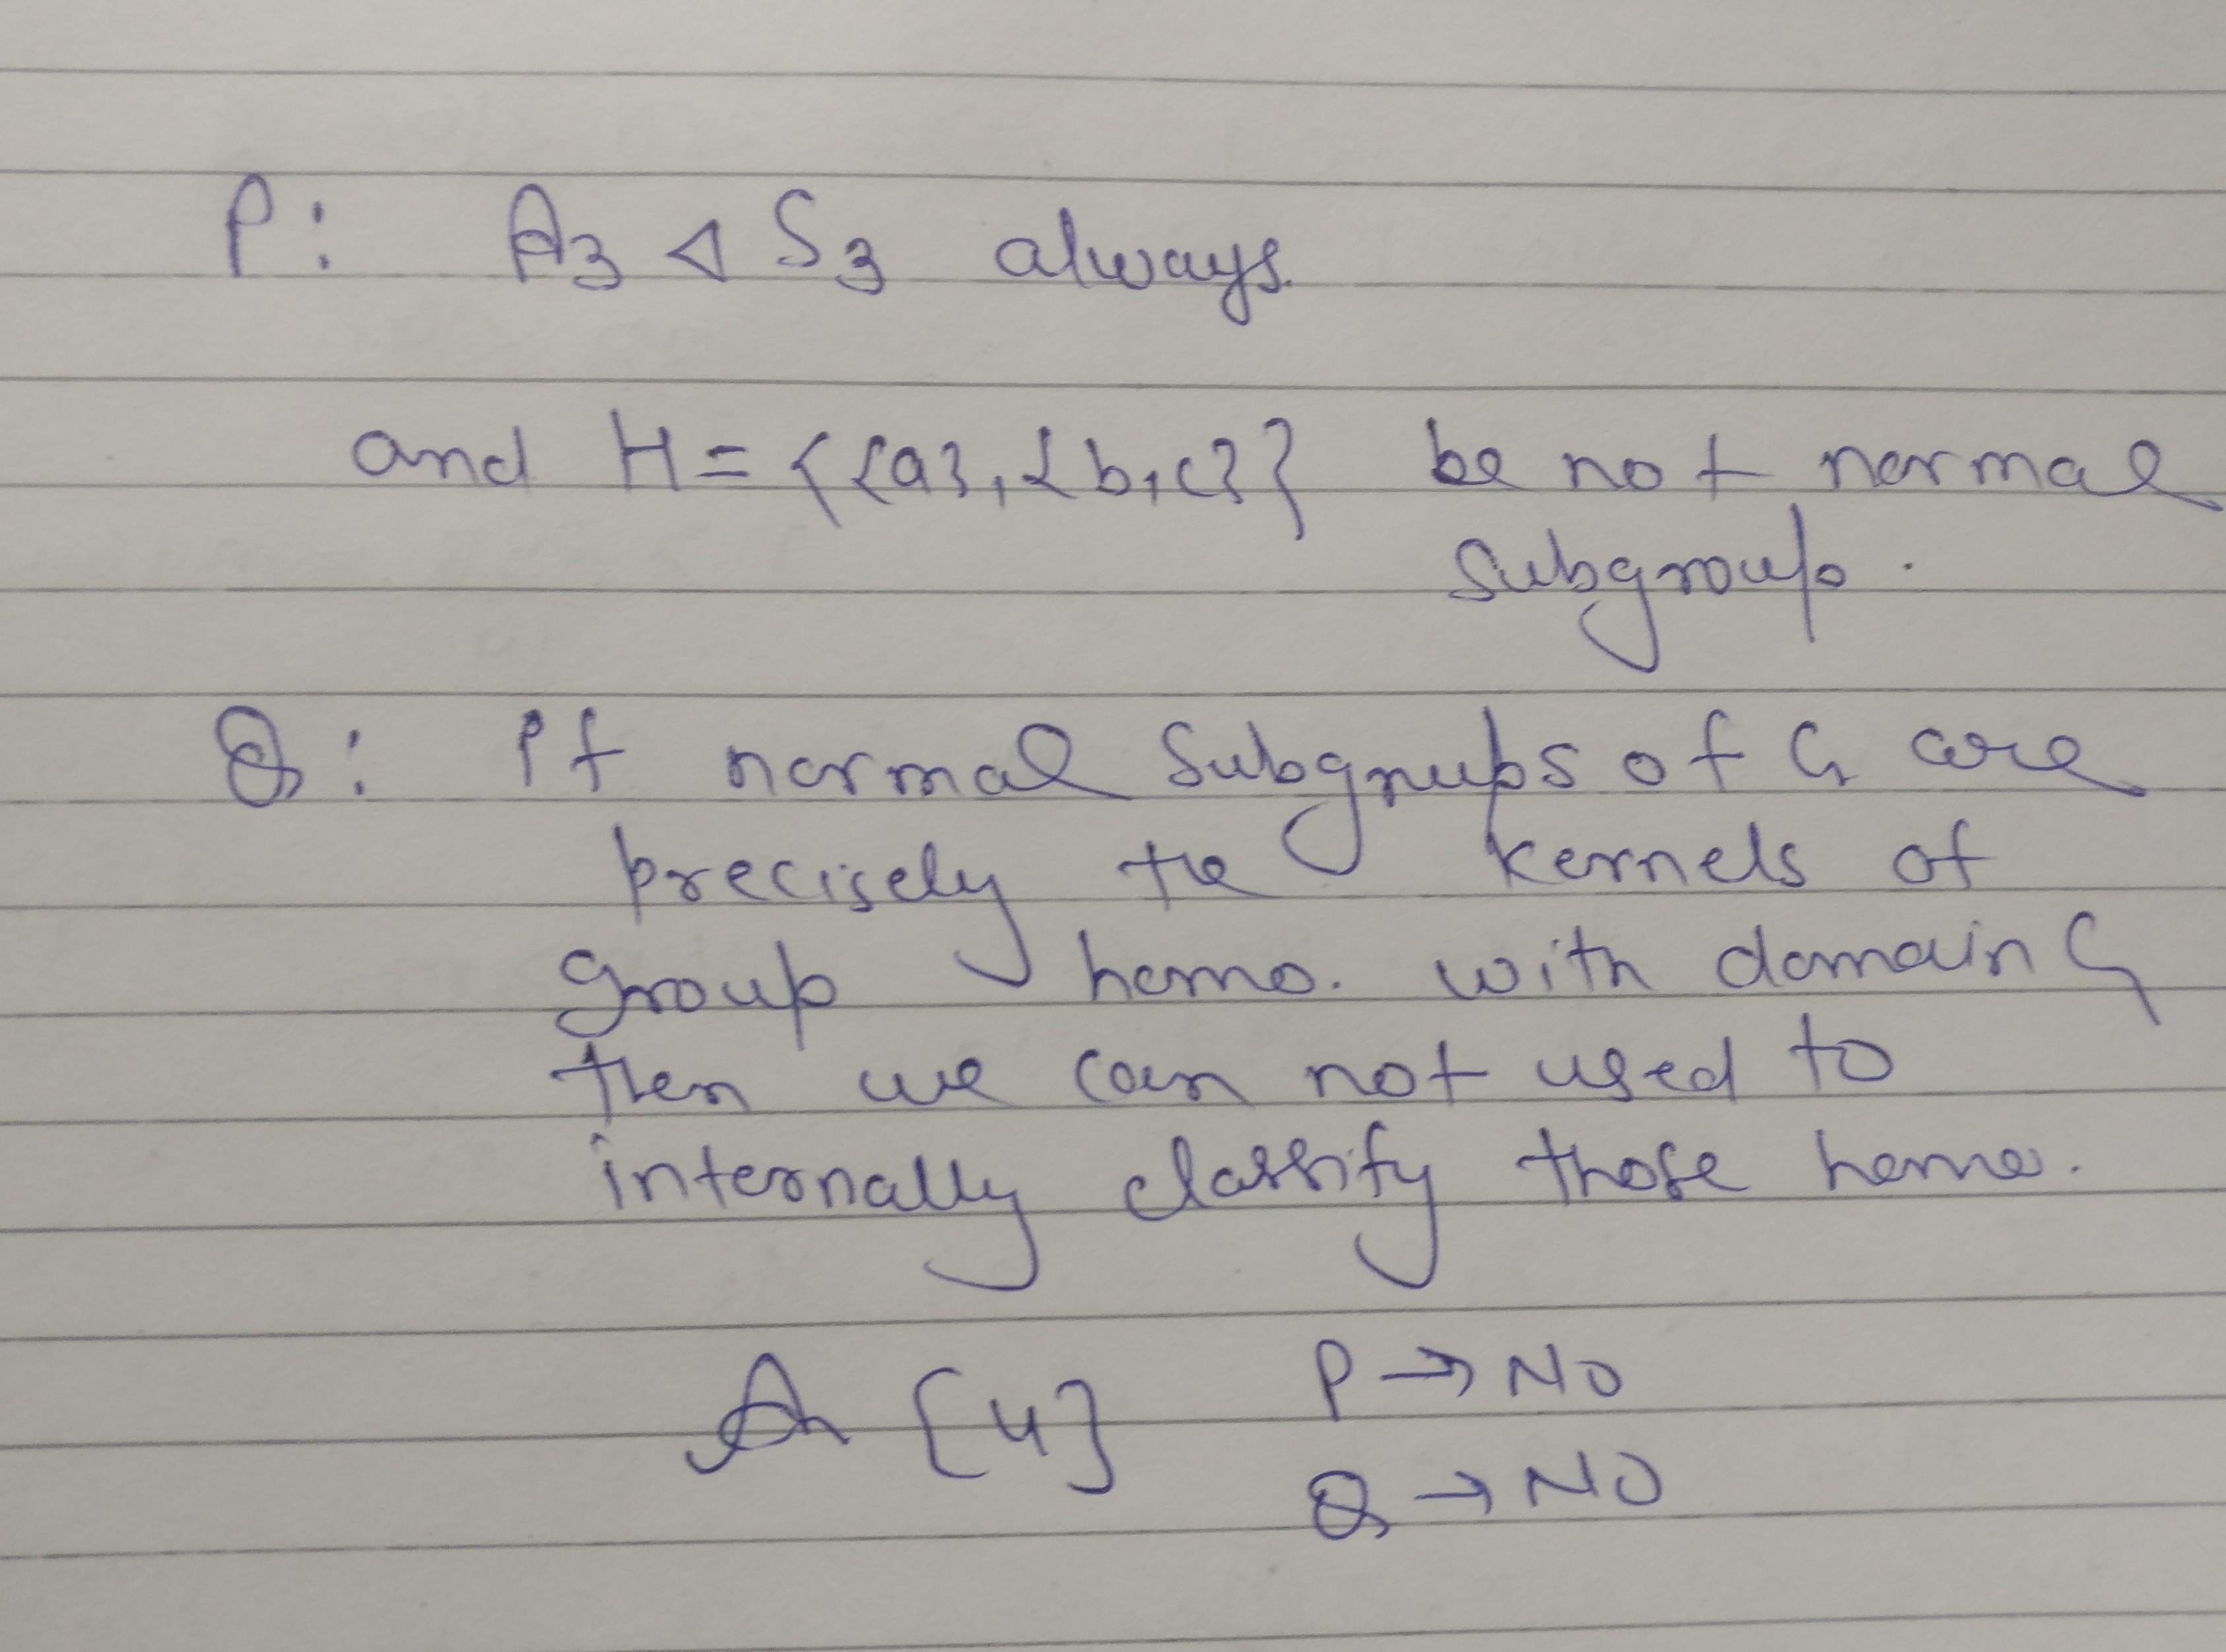 P: A3 ◁ S3 always.
and H = {{a}, {b,c}} be not normal
subgroup.
Q: If normal subgrups of G are
precisely the kernels of
group homo. with domain G
then we can not used to
internally classify those homo.
A {4} P → NO
Q → NO